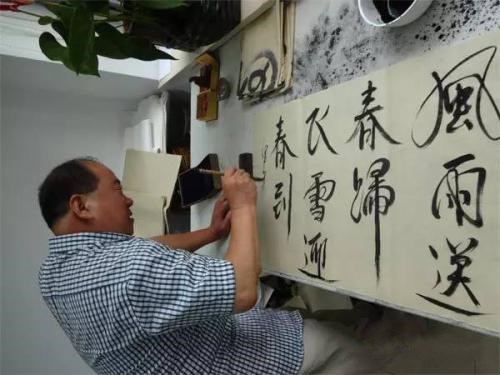 風雨送
春歸
飞雪迎
春到